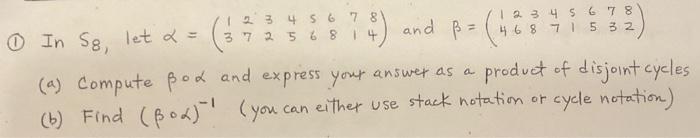 ① In S₈, let α = (1 2 3 4 5 6 7 8 / 3 7 2 5 6 8 1 4) and β = (1 2 3 4 5 6 7 8 / 4 6 8 7 1 5 3 2)
(a) Compute β∘α and express your answer as a product of disjoint cycles
(b) Find (β∘α)⁻¹ (you can either use stack notation or cycle notation)